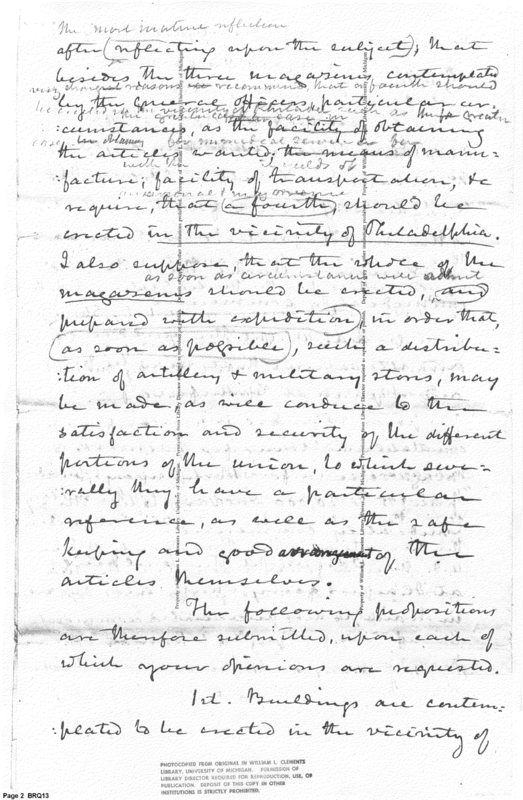 the most mature reflection
after (reflecting upon the subject); that
besides the three magazines contemplated
very strong reasons recommend that a fourth should
by the General Officers, particular cir-
:cumstances, as the facility of obtaining
the articles wanted; the means of manu-
:facture; facility of transportation, &c
require, that (a fourth) should be
erected in the vicinity of Philadelphia.
I also suppose, that the whole of the
as soon as circumstances will admit
magazines should be erected, (and
prepared with expedition) in order that,
(as soon as possible), such a distribu=
:tion of artillery & military stores, may
be made, as will conduce to the
satisfaction and security of the different
portions of the union, to which seve-
:rally they have a particular
reference, as well as the safe
keeping and good arrangement of the
articles themselves.
The following propositions
are therefore submitted, upon each of
which your opinions are requested.
1st. Buildings are contem-
:plated to be erected in the vicinity of
PHOTOCOPIED FROM ORIGINAL IN WILLIAM L. CLEMENTS
LIBRARY, UNIVERSITY OF MICHIGAN. PERMISSION OF
LIBRARY DIRECTOR REQUIRED FOR REPRODUCTION, USE, OR
PUBLICATION. DEPOSIT OF THIS COPY IN OTHER
INSTITUTIONS IS STRICTLY PROHIBITED.
Page 2 BRQ13